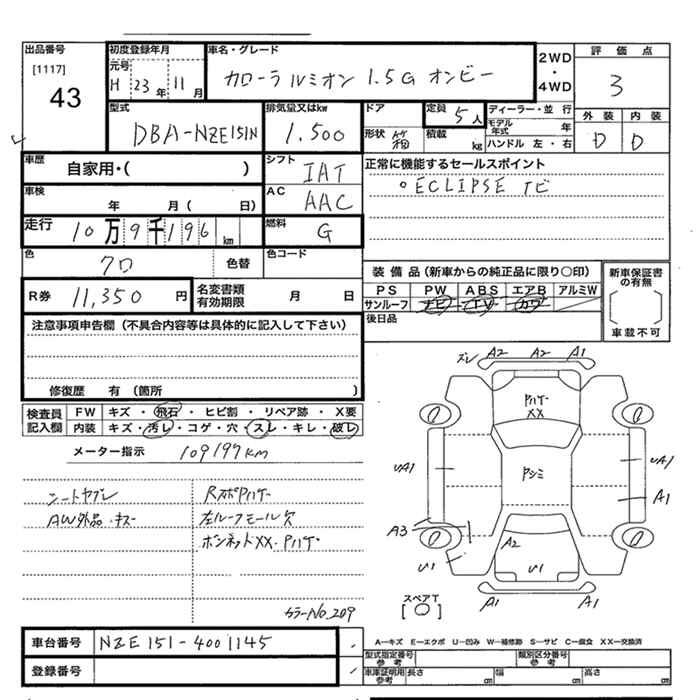 出品番号
[1117]
43
初度登録年月
元号
H 23年 11月
車名・グレード
カローラ ルミオン 1.5G オンビー
2WD
・
4WD
評価点
3
型式
DBA-NZE151N
排気量又はkw
1.500
ドア
形状
定員
5人
積載
kg
ディーラー・並行
モデル年式 年
ハンドル 左・右
外装
D
内装
D
車歴
自家用・( )
シフト
IAT
正常に機能するセールスポイント
○ECLIPSE ナビ
車検
年 月( 日)
AC
AAC
走行
10万9千196km
燃料
G
色
クロ
色替
色コード
装備品(新車からの純正品に限り○印)
PS PW ABS エアB アルミW
サンルーフ ナビ TV カワ
新車保証書の有無
車載不可
R券
11,350円
名変書類有効期限
月 日
後日品
注意事項申告欄(不具合内容等は具体的に記入して下さい)
修復歴 有(箇所 )
検査員記入欄
FW キズ・飛石・ヒビ割・リペア跡・X要
内装 キズ・汚レ・コゲ・穴・スレ・キレ・破レ
メーター指示 109197km
シートヤブレ
AW外品・キズ
RスポPハゲ
左ルーフモール欠
ボンネットXX・Pハゲ
カラーNo.209
ズレ A2 A2 A1
Pハゲ
XX
UA1
Pシミ
UA1
A1
A3
U1
A2
U1
A1
A1
スペアT
[○]
車台番号
NZE151-4001145
登録番号
A―キズ E―エクボ U―凹み W―補修跡 S―サビ C―腐食 XX―交換済
型式指定番号
参考
類別区分番号
参考
車庫証明用
参考
長さ cm
幅 cm
高さ cm